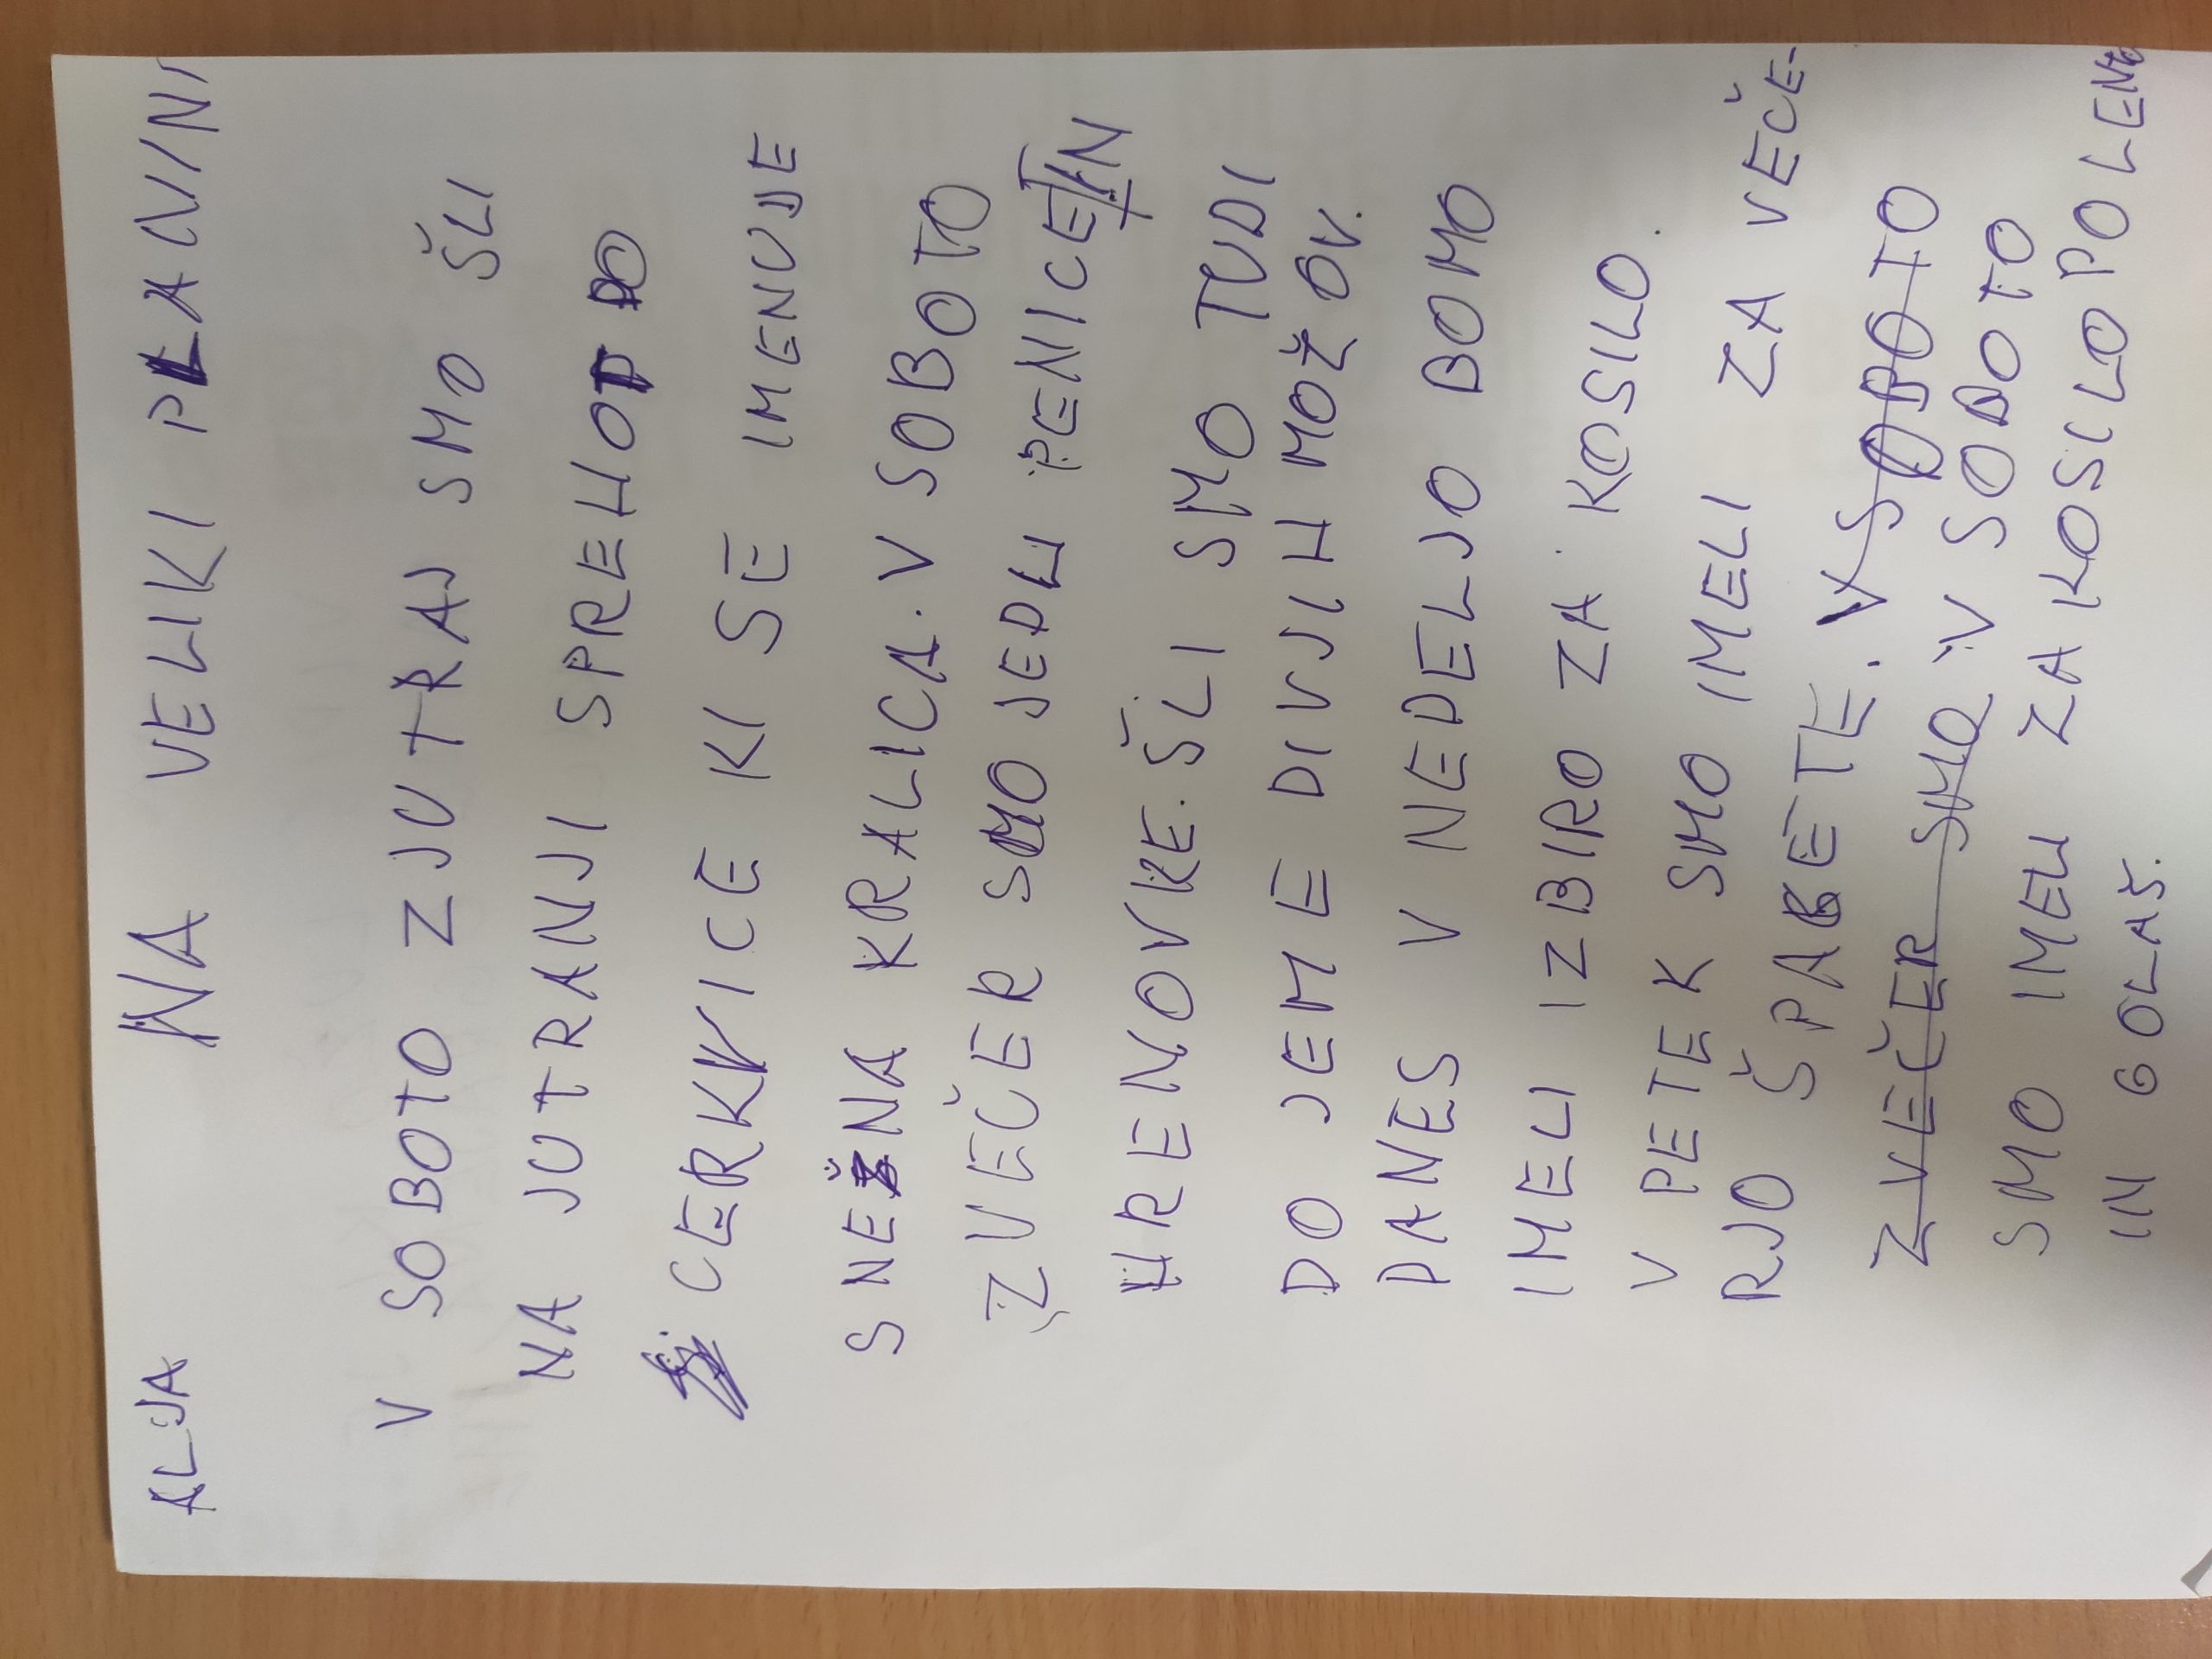 ALJA NA VELIKI PLANINI
V SOBOTO ZJUTRAJ SMO ŠLI
NA JUTRANJI SPREHOT DO
CERKVICE KI SE IMENUJE
SNEŽNA KRALICA. V SOBOTO
ZVEČER SMO JEDLI PENICE IN
HRENOVKE. ŠLI SMO TUDI
DO JEME DIVJIH MOŽOV.
DANES V NEDELJO BOMO
IMELI IZBIRO ZA KOSILO.
V PETEK SMO IMELI ZA VEČE-
RJO ŠPAGETE. V SOBOTO
ZVEČER SMO V SOBOTO
SMO IMELI ZA KOSILO POLENTO
IN GOLAŠ.